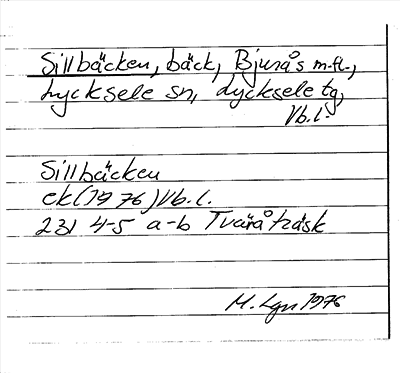 Sillbäcken, bäck, Bjurås m.fl.,
Lycksele sn, Lycksele tg,
Vb.l.
Sillbäcken
ek(1976)Vb.l.
23I 4-5 a-b Tväråträsk
M. Lgn 1976